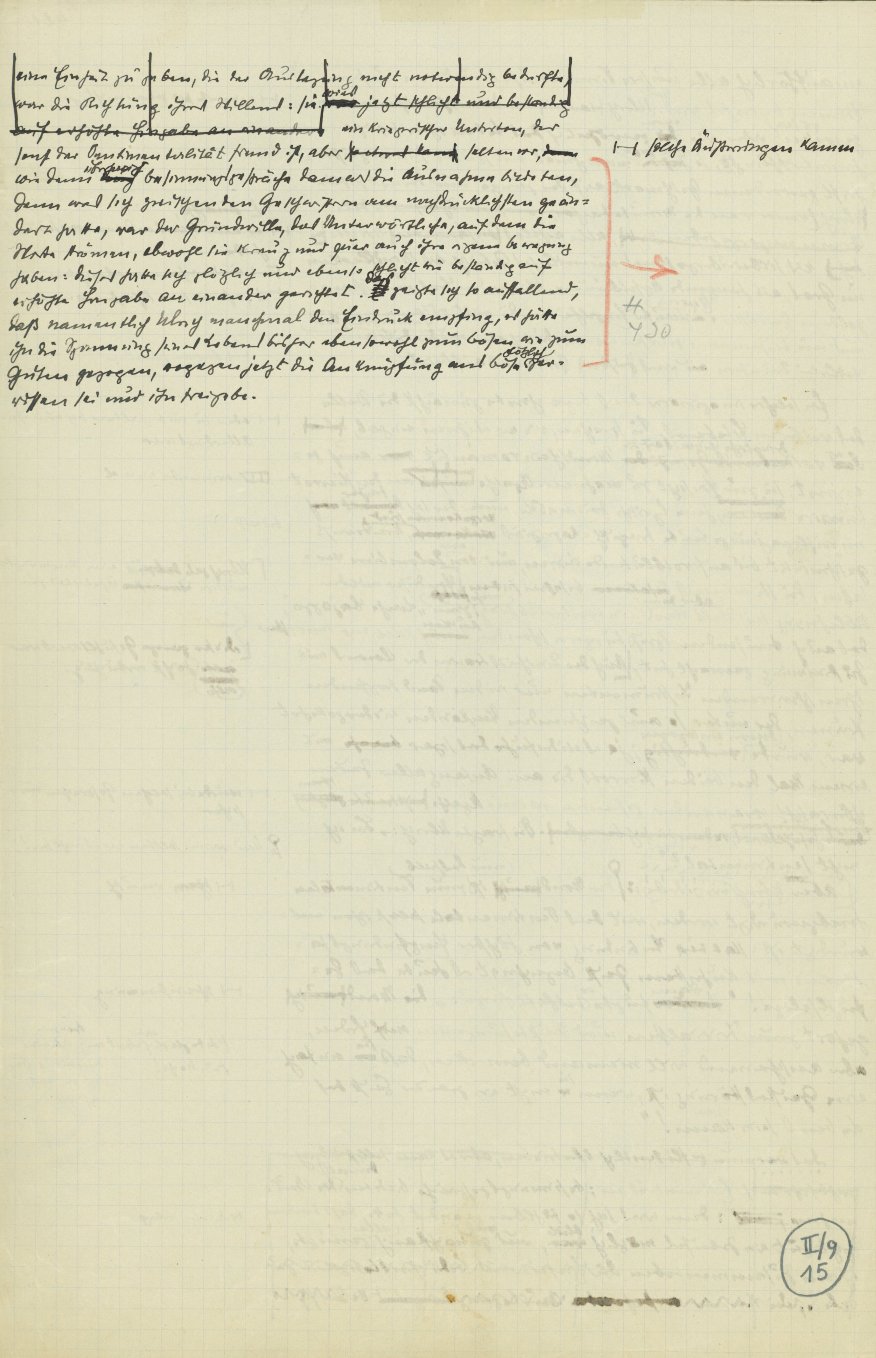 eine Einheit zu haben, die der Auslegung nicht notwendig bedurfte,
war die Richtung ihres Willens: sie wird jetzt schlicht und beständig
auf erhöhte Hingabe an einander
ein kriegerischer Unterton, der
sonst der Sentimentalität fremd ist, aber selten vor,
⊢⊣ solche Äußerungen kamen
wie denn überhaupt besinnungsgespräche damals die Ausnahme bildeten,
denn was sich zwischen den Geschwistern am nachdrücklichsten geän-
dert hatte, war der Grundwille, das Unterwörtliche, auf dem die
Worte strömen, obwohl sie kreuz und quer auch ihre eigene bewegung
haben: dieses hatte sich plötzlich und ebenso schlicht wie beständig auf
erhöhte Hingabe an einander gerichtet. Das zeigte sich so auffallend,
daß namentlich Ulrich manchmal den Eindruck empfing, es hätte
ihn die Spannung seines Lebens bisher ebensowohl zum bösen wie zum
Guten gezogen, wogegen jetzt die Anknüpfung ans böse plötzlich zer-
rissen sei und ihn freigebe.
II/9
15